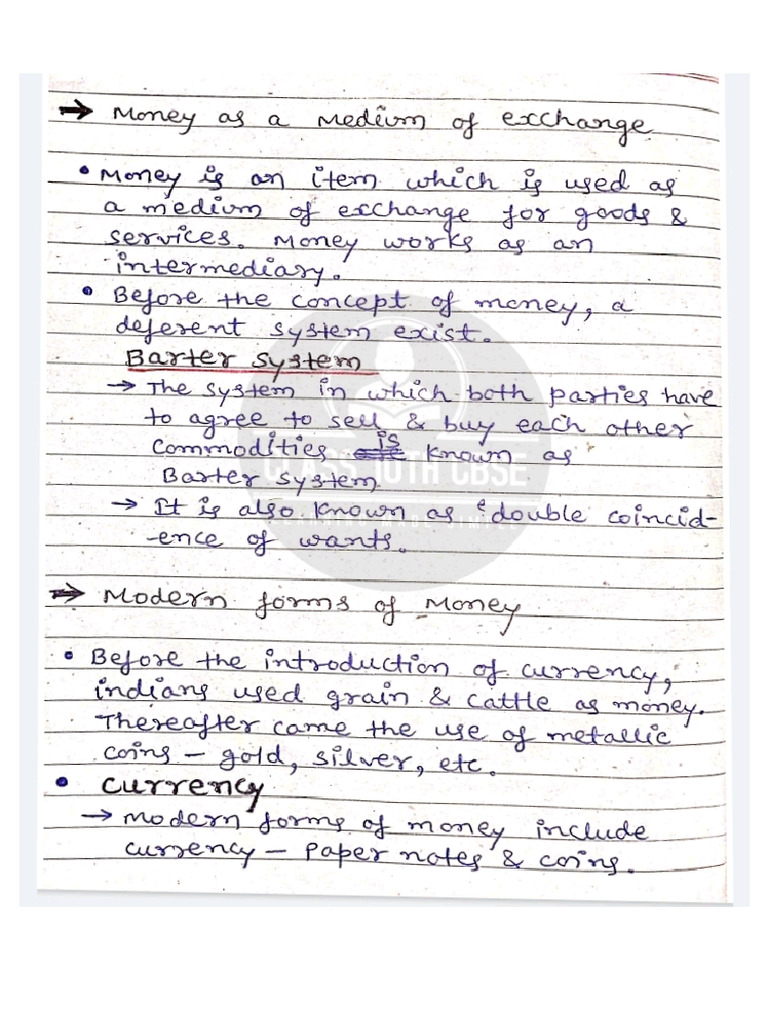 → Money as a Medium of exchange
• Money is an item which is used as
a medium of exchange for goods &
services. Money works as an
intermediary.
• Before the concept of money, a
deferent system exist.
Barter system
→ The system in which both parties have
to agree to sell & buy each other
commodities is known as
Barter system
→ It is also known as ‘double coincid-
-ence of wants.
CLASS 10TH CBSE
⇒ Modern forms of Money
• Before the introduction of currency,
indians used grain & cattle as money.
Thereafter came the use of metallic
coins – gold, silver, etc.
• Currency
→ Modern forms of money include
currency – Paper notes & coins.